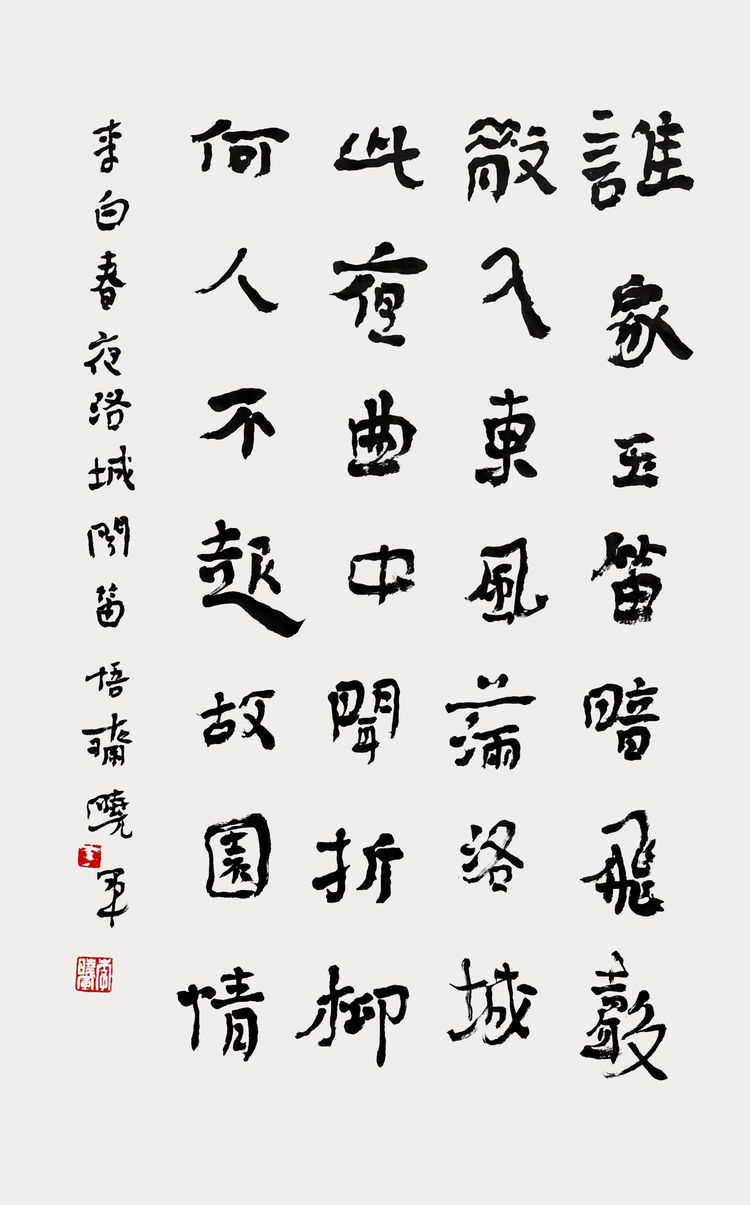 誰家玉笛暗飛聲
散入東風滿洛城
此夜曲中聞折柳
何人不起故園情
李白春夜洛城聞笛 悟 曉軍
李曉軍